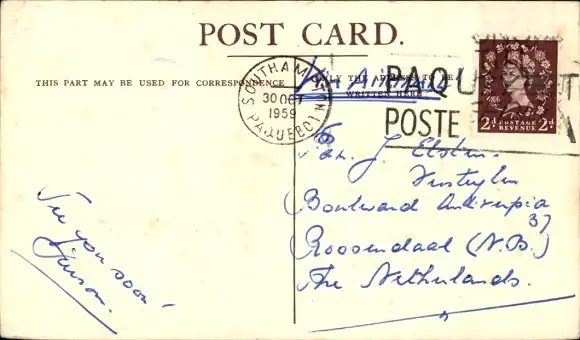 POST CARD.
THIS PART MAY BE USED FOR CORRESPONDENCE
ONLY THE ADDRESS TO BE
WRITTEN HERE
Via Airmail
SOUTHAMPTON
30 OCT
1959
PAQUEBOT
PAQUEBOT
POSTE
2D POSTAGE REVENUE 2D
J. Elsten.
Boulevard Antverpia
37
Roosendaal (N.B.)
The Netherlands.
See you soon!